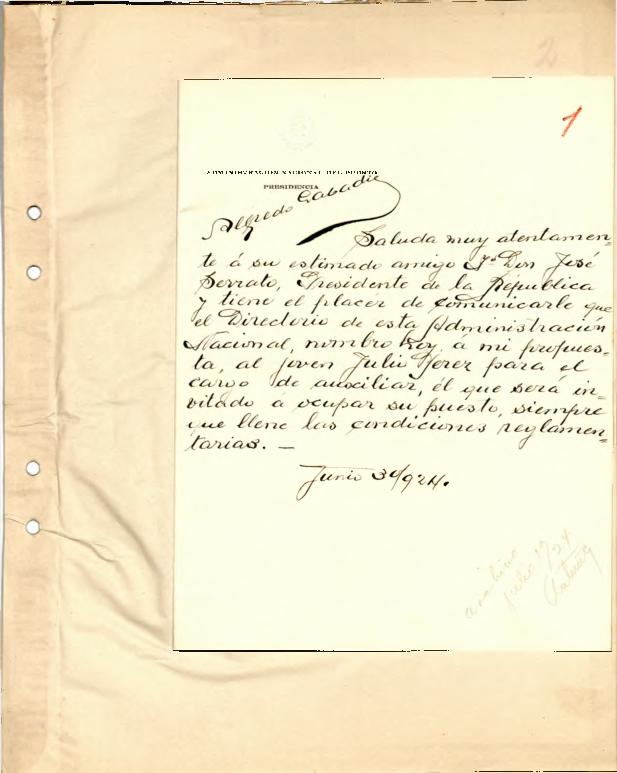 2
1
ADMINISTRACION NACIONAL DEL PUERTO
PRESIDENCIA
Alfredo Labadie
Saluda muy atentamen=
te á su estimado amigo Sr Don José
Serrato, Presidente de la República
y tiene el placer de comunicarle que
el Directorio de esta Administración
Nacional, nombro hoy, á mi propues=
ta, al joven Julio Yerez para el
cargo de auxiliar, él que será in=
vitado á ocupar su puesto, siempre
que llene las condiciones reglamen=
tarias. —
Junio 30/924.
archivo
julio 1º/24